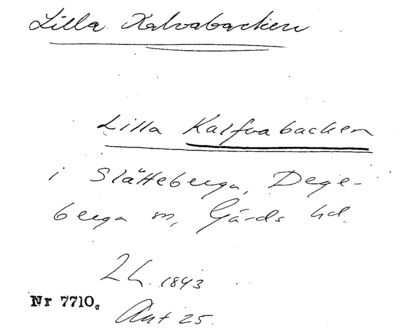 Lilla Kalvabacken
Lilla Kalfvabacken
i Slätteberga, Dege-
berga sn, Gärds hd.
LL. 1843
Akt 25.
Nr 7710.